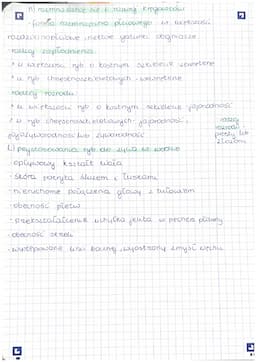 h) rozmnażanie się i rozwój kręgowców
- forma rozmnażania płciowego u większości
rozdzielnopłciowe, niektóre gatunki obojnacze
rodzaj zapłodnienia
* u większości ryb o kostnym szkielecie zewnętrzne
* u ryb chrzęstnoszkieletowych - wewnętrzne
rodzaj rozrodu
* u większości ryb o kostnym szkielecie jajorodność
* u ryb chrzęstnoszkieletowych - jajorodność,
jajożyworodność lub żyworodność
rozwój
prosty lub
złożony
i) przystosowania ryb do życia w wodzie
- opływowy kształt ciała
- skóra pokryta śluzem i łuskami
- nieruchome połączenie głowy z tułowiem
- obecność płetw
- przekształcenie uchyłka jelita w pęcherz pławny
- obecność skrzeli
- występowanie linii bocznej, wyostrzony zmysł węchu